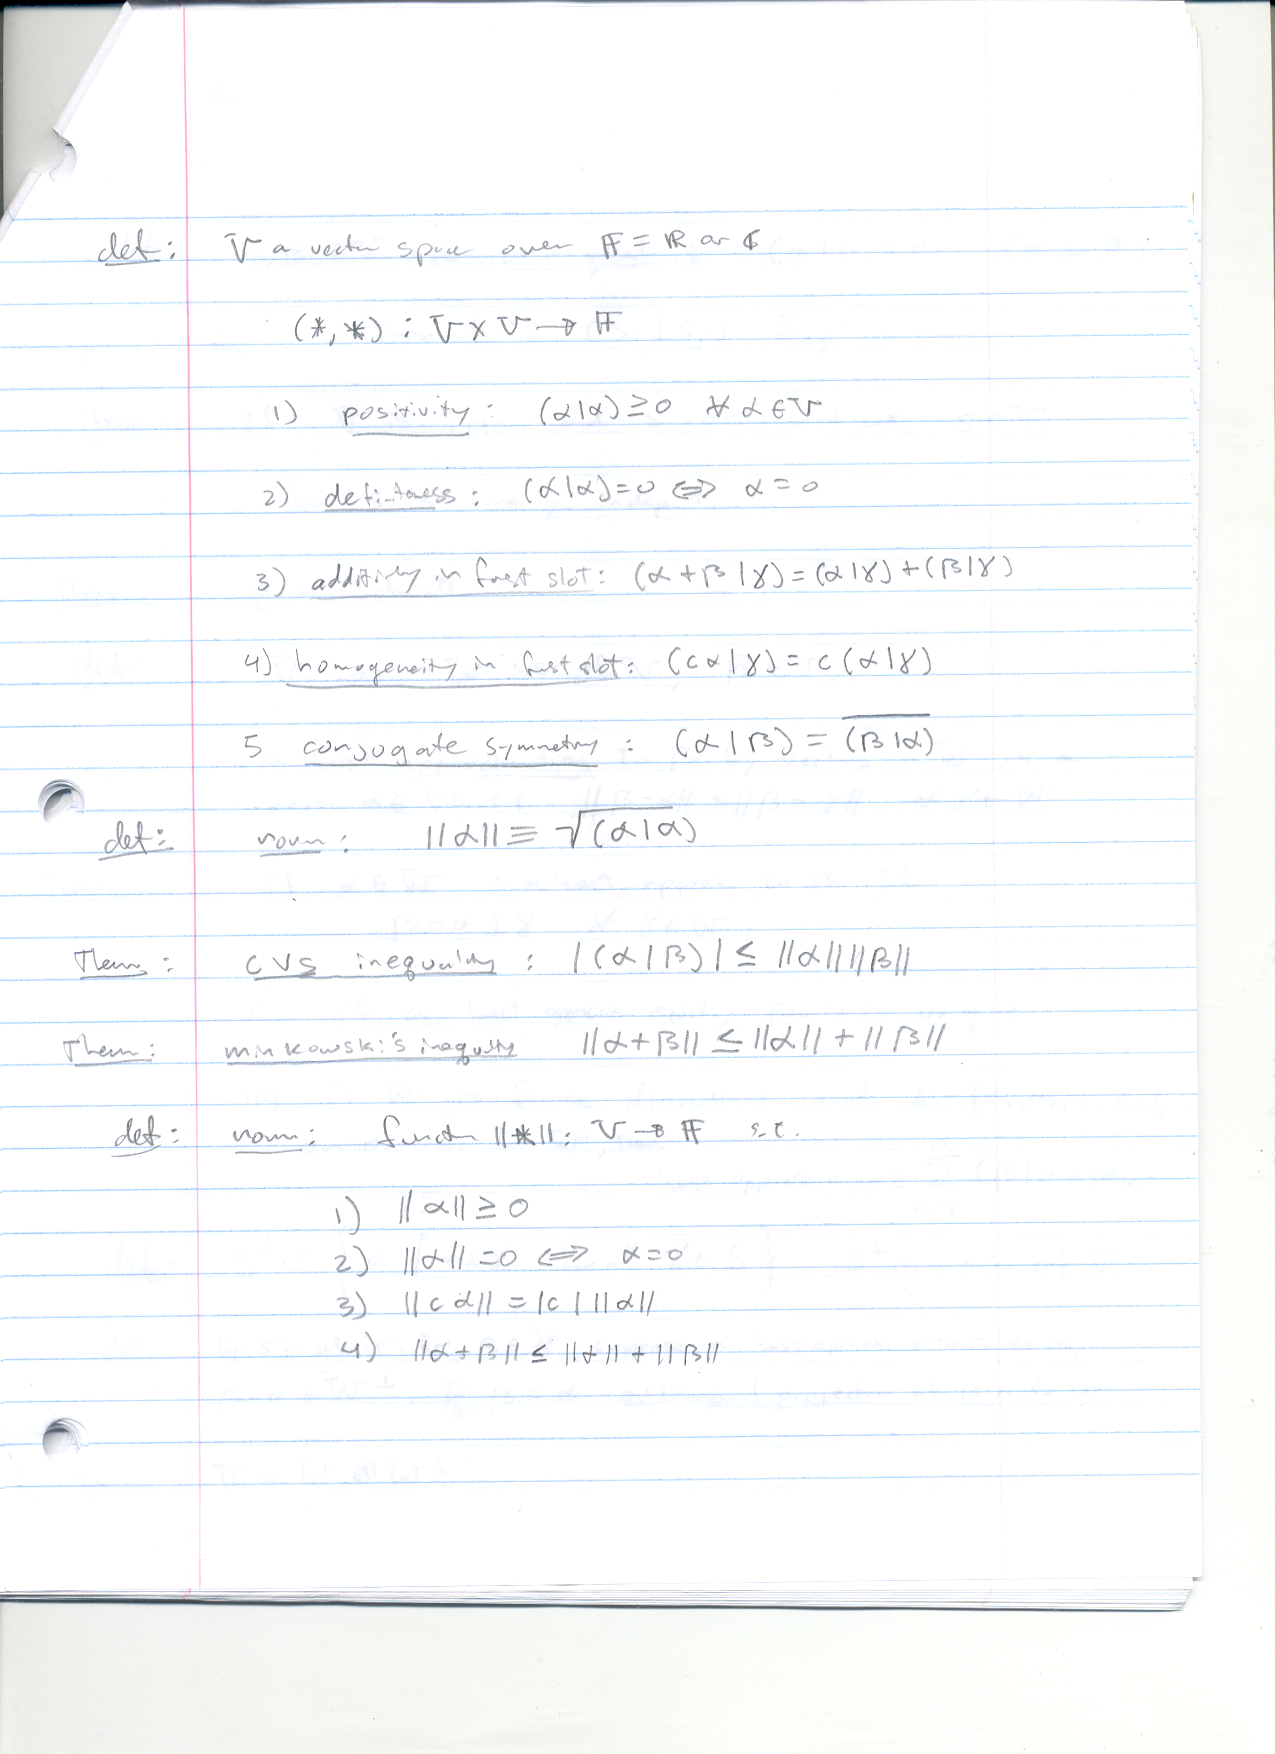 def: V a vector space over 𝔽 = ℝ or ℂ
(*,*) : V × V → 𝔽
1) positivity: (α|α) ≥ 0 ∀ α ∈ V
2) definiteness: (α|α) = 0 ⟺ α = 0
3) additivity in first slot: (α + β|γ) = (α|γ) + (β|γ)
4) homogeneity in first slot: (cα|γ) = c(α|γ)
5 conjugate symmetry: (α|β) = \overline{(β|α)}
def: norm: ||α|| ≡ √(α|α)
Thm: CVS inequality: |(α|β)| ≤ ||α|| ||β||
Thm: minkowski's inequlty ||α+β|| ≤ ||α|| + ||β||
def: norm: functn ||*||: V → 𝔽 s.t.
1) ||α|| ≥ 0
2) ||α|| = 0 ⟺ α = 0
3) ||cα|| = |c| ||α||
4) ||α+β|| ≤ ||α|| + ||β||